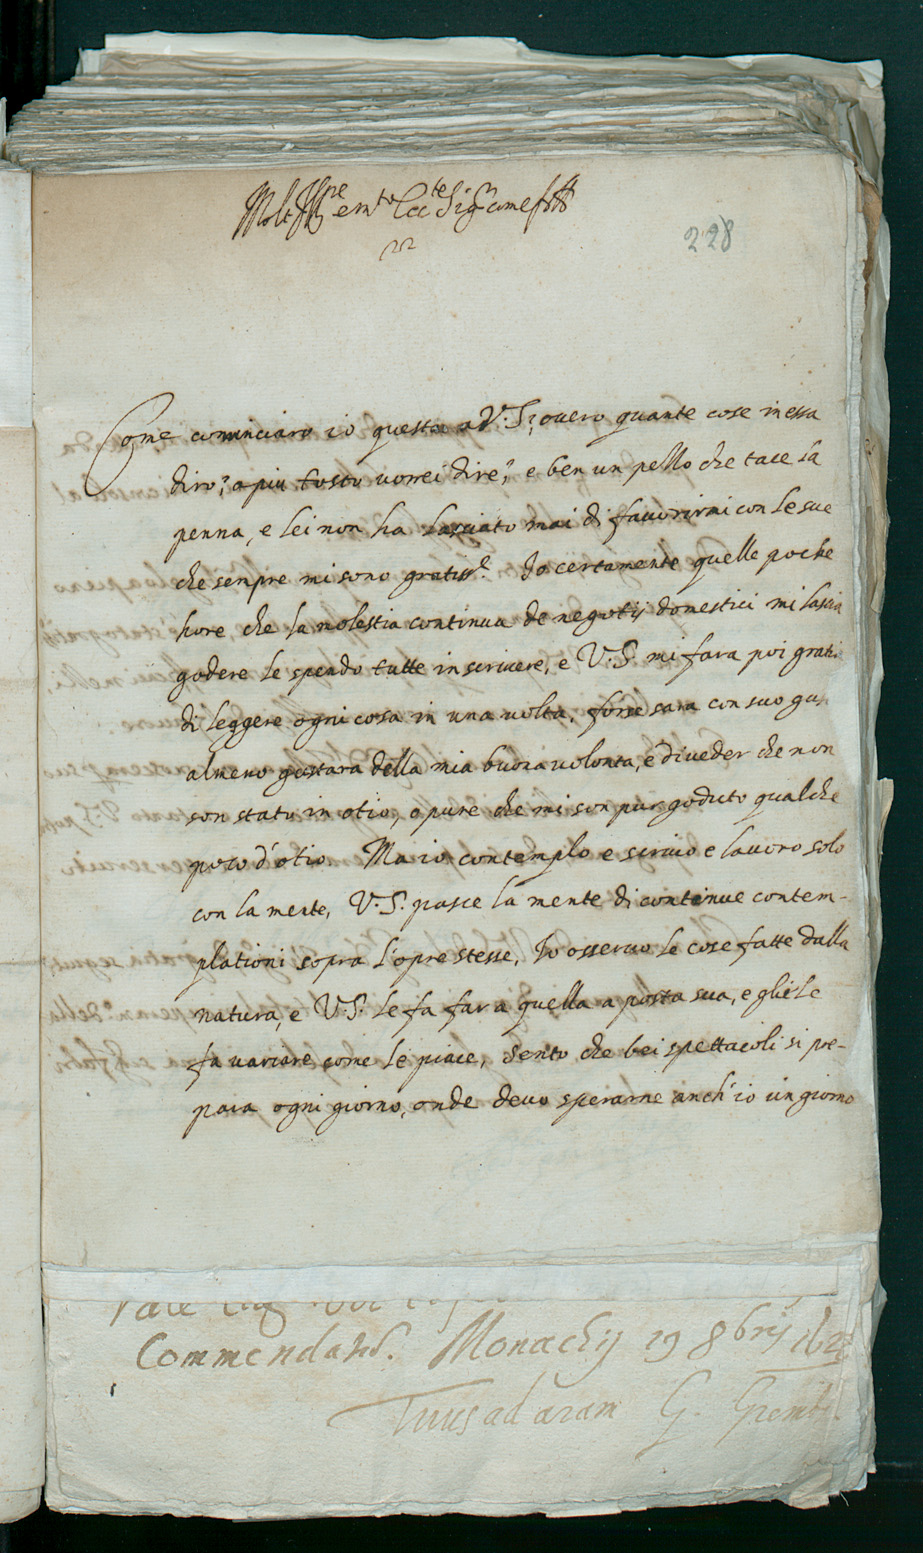 Molt Ill.re e m.to Ecc.te Sig.r come fr̃e
228
Come cominciarò io questa a V.S.? ouero quante cose in essa
dirò? o più tosto uorrei dire? e ben un pello che tace la
penna, e lei non ha lasciato mai di fauorirmi con le sue
che senpre mi sono gratiss.e Io certamente quelle poche
hore che la molestia continua de negotij domestici mi lascia
godere le spendo tutte in scriuere, e V.S. mi fara poi grati
di leggere ogni cosa in una uolta, forse sara con suo gus
almeno gustara della mia buona uolonta, e di ueder che non
son stato in otio, o pure che mi son pur goduto qualche
poco d'otio. Ma io contemplo e scriuo e lauoro solo
con la mente, V.S. pasce la mente di continue contem-
plationi sopra l'opre stesse, Io osseruo le cose fatte dalla
natura, e V.S. le fa far a quella a posta sua, e gliele
fa uariare come le piace, Sento che bei spettacoli si pre-
para ogni giorno, onde deuo sperarne anch'io un giorno
Vale
Commendat. Monachij 19 8brij 162
Tuus ad aram G.